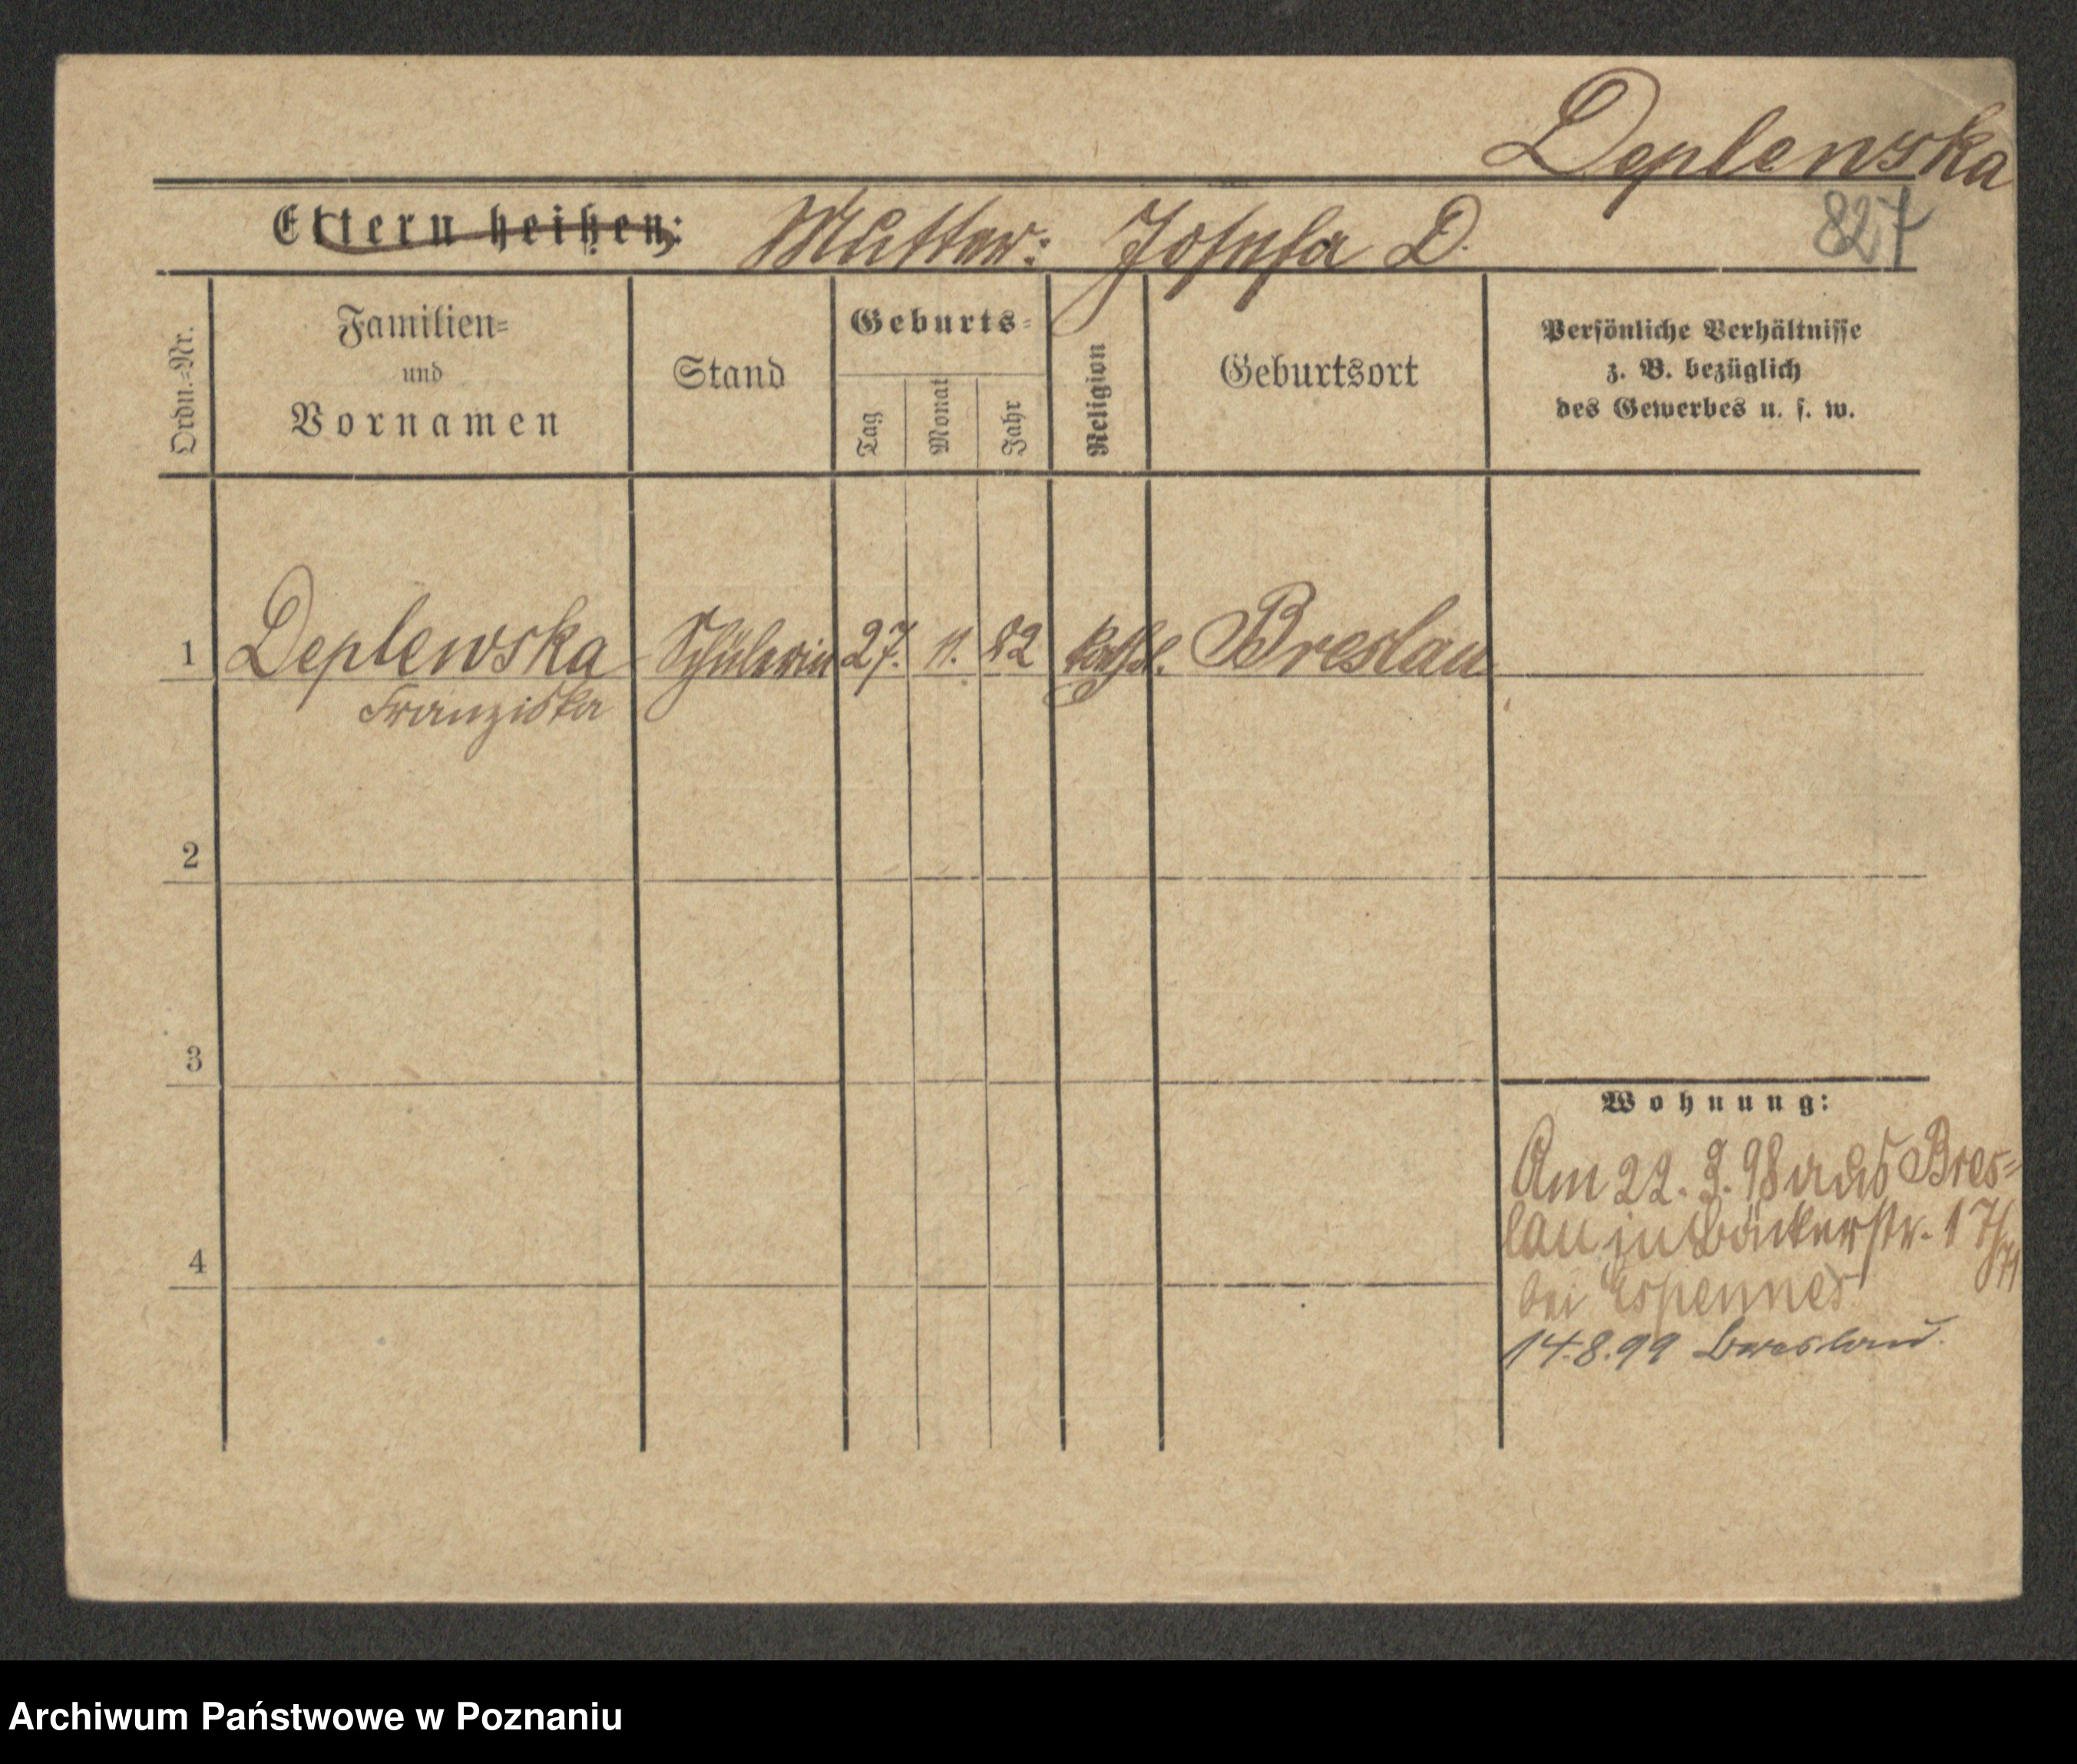 Deplewska
827
Eltern heißen: Mutter: Josefa D.
Ordn.-Nr.
Familien-
und
Vornamen
Stand
Geburts-
Tag
Monat
Jahr
Religion
Geburtsort
Persönliche Verhältnisse
z. B. bezüglich
des Gewerbes u. s. w.
1 Deplewska Schülerin 27. 11. 82 kathol. Breslau
Franziska
2
3
Wohnung:
Am 22. 9. 98 aus Bres-
lau in Bäckerstr. 1
4
bei Espennes
14.8.99 Breslau.
Archiwum Państwowe w Poznaniu